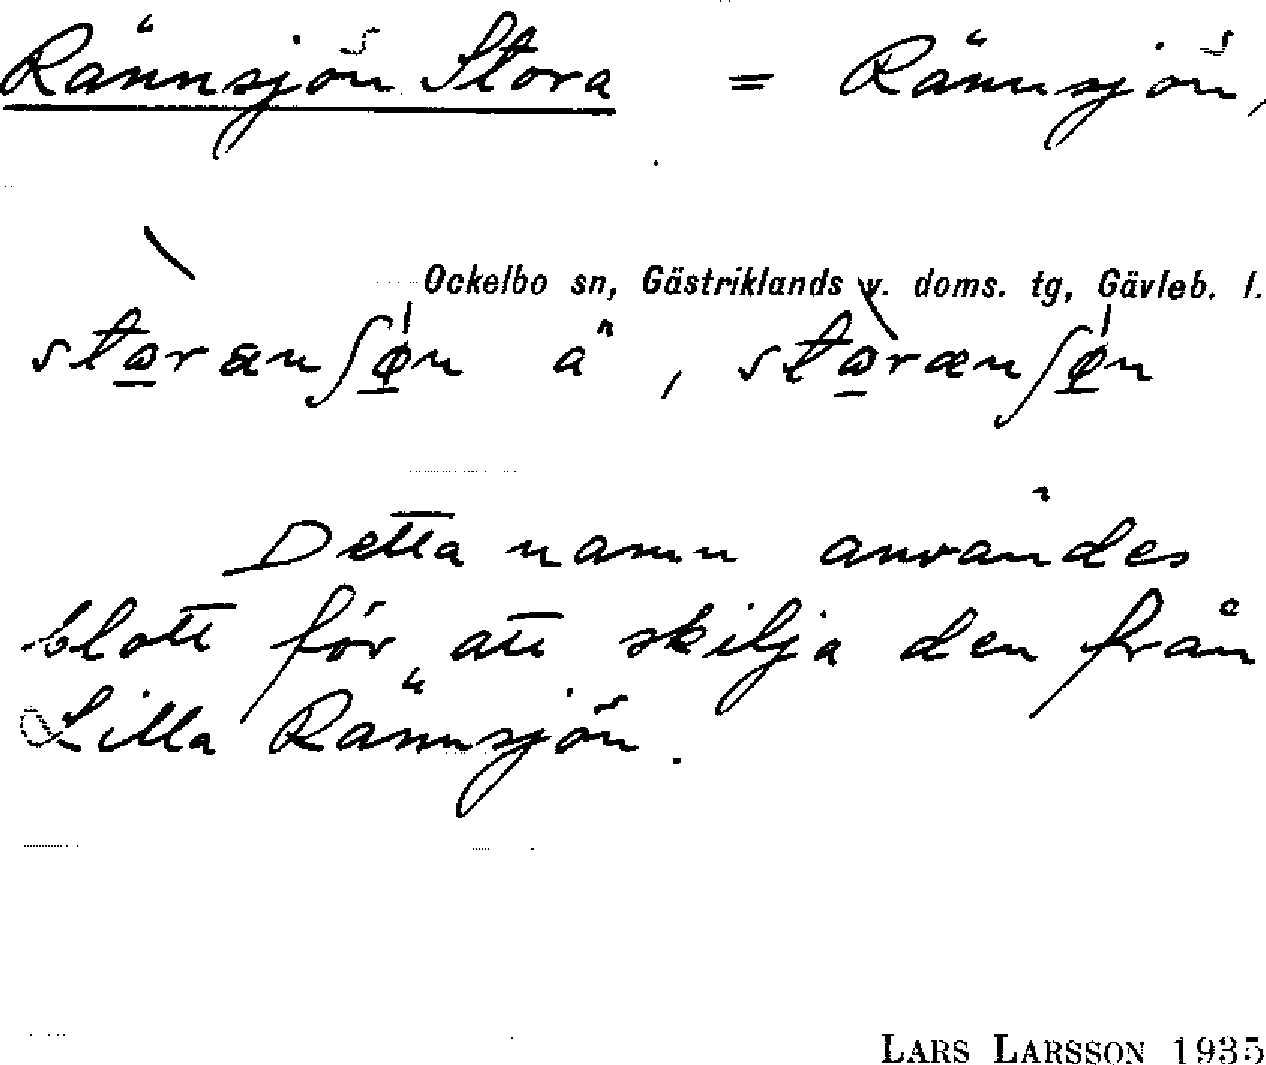 Rännsjön Stora = Rännsjön,
Ockelbo sn, Gästriklands v. doms. tg, Gävleb. l.
Detta namn användes
blott för att skilja den från
Lilla Rännsjön.
LARS LARSSON 1935